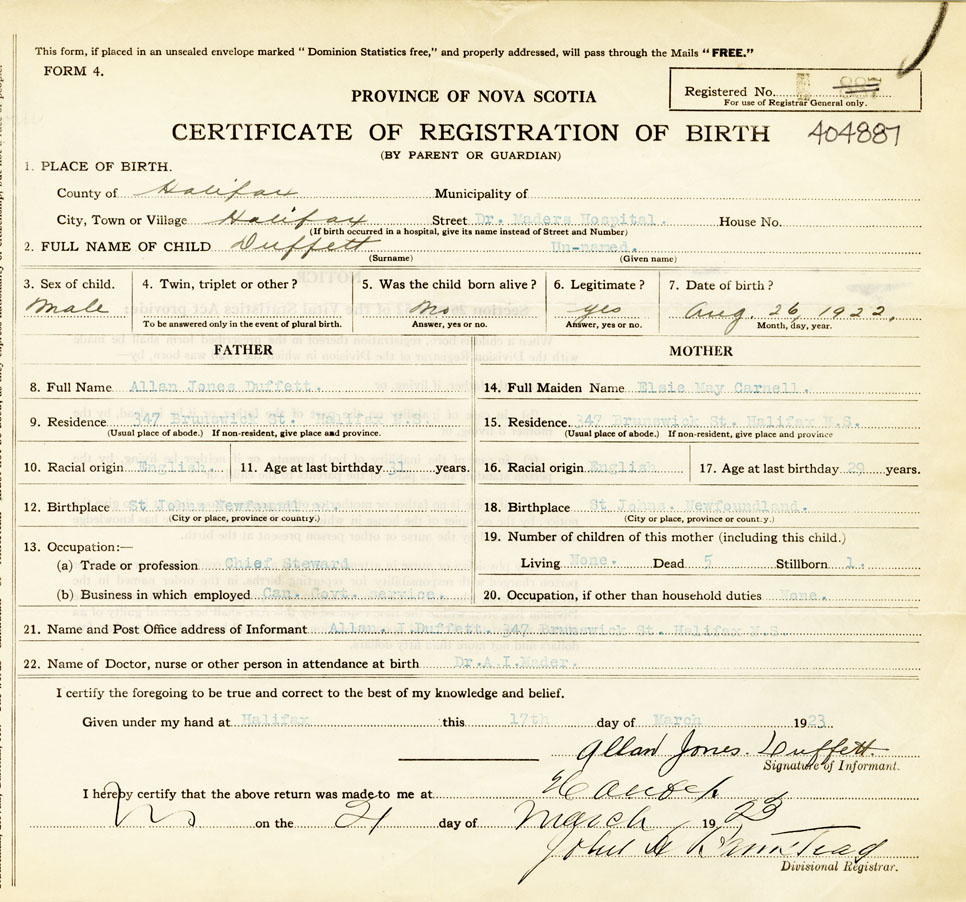 This form, if placed in an unsealed envelope marked "Dominion Statistics free," and properly addressed, will pass through the Mails "FREE."
FORM 4.
Registered No. 887
For use of Registrar General only.
PROVINCE OF NOVA SCOTIA
CERTIFICATE OF REGISTRATION OF BIRTH 404887
(BY PARENT OR GUARDIAN)
1. PLACE OF BIRTH.
County of Halifax Municipality of
City, Town or Village Halifax Street Dr. Maders Hospital. House No.
(If birth occurred in a hospital, give its name instead of Street and Number)
2. FULL NAME OF CHILD Duffett Un-named.
(Surname) (Given name)
3. Sex of child. 4. Twin, triplet or other? 5. Was the child born alive? 6. Legitimate? 7. Date of birth?
Male No yes Aug. 26, 1922.
To be answered only in the event of plural birth. Answer, yes or no. Answer, yes or no. Month, day, year.
FATHER MOTHER
8. Full Name Allan Jones Duffett. 14. Full Maiden Name Elsie May Carnell.
9. Residence 347 Brunswick St. Halifax N.S. 15. Residence. 347 Brunswick St. Halifax N.S.
(Usual place of abode.) If non-resident, give place and province. (Usual place of abode.) If non-resident, give place and province
10. Racial origin English. 11. Age at last birthday 31 years. 16. Racial origin English 17. Age at last birthday 29 years.
12. Birthplace St Johns Newfoundland. 18. Birthplace St Johns. Newfoundland.
(City or place, province or country.) (City or place, province or country.)
13. Occupation:— 19. Number of children of this mother (including this child.)
(a) Trade or profession Chief Steward Living None. Dead 5 Stillborn 1.
(b) Business in which employed Can. Govt. service. 20. Occupation, if other than household duties None.
21. Name and Post Office address of Informant Allan. J.Duffett. 347 Brunswick St. Halifax N.S.
22. Name of Doctor, nurse or other person in attendance at birth Dr.A I.Mader.
I certify the foregoing to be true and correct to the best of my knowledge and belief.
Given under my hand at Halifax this 17th day of March 1923
Allan Jones. Duffett
Signature of Informant.
I hereby certify that the above return was made to me at
on the 21 day of March 1923
John
Divisional Registrar.